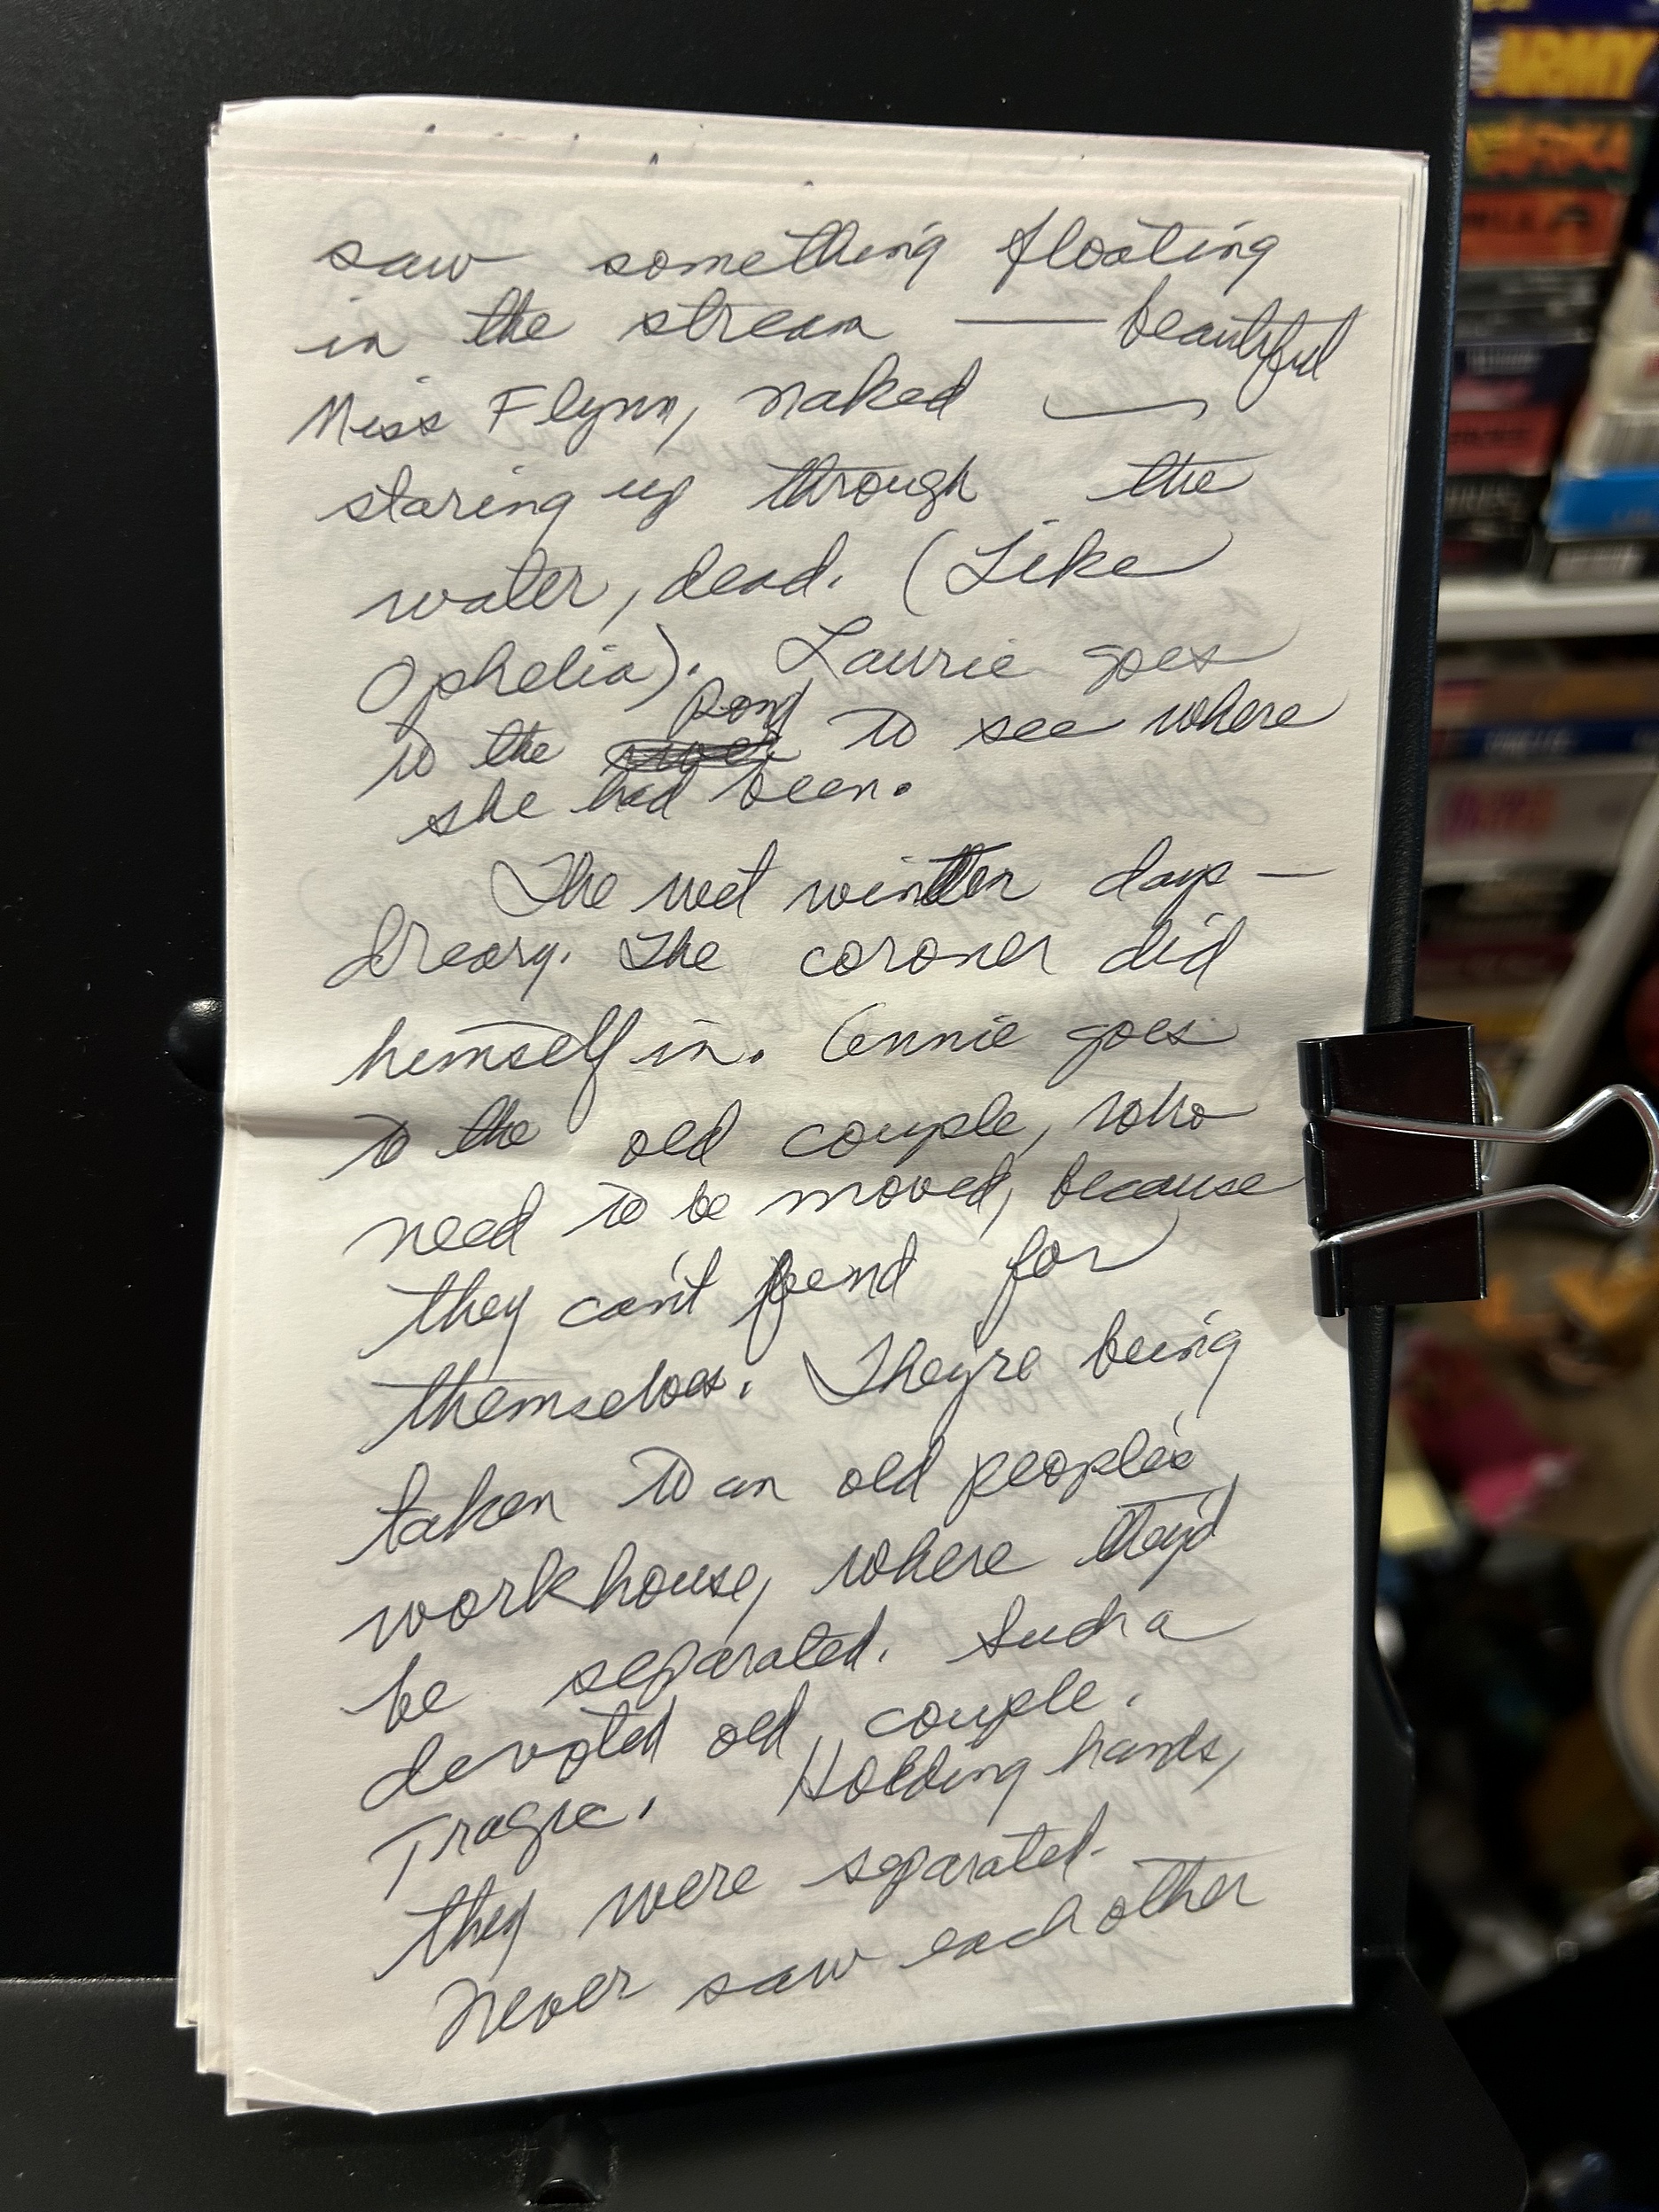 saw something floating
in the stream — beautiful
Miss Flynn, naked —
staring up through the
water, dead. (Like
Ophelia). Laurie goes
to the pond to see where
she had been.
The wet winter days —
dreary. The coroner did
himself in. Annie goes
to the old couple, who
need to be moved, because
they can't fend for
themselves. They're being
taken to an old people's
workhouse, where they'd
be separated. Such a
devoted old couple.
Tragic. Holding hands,
they were separated.
Never saw each other
ARMY